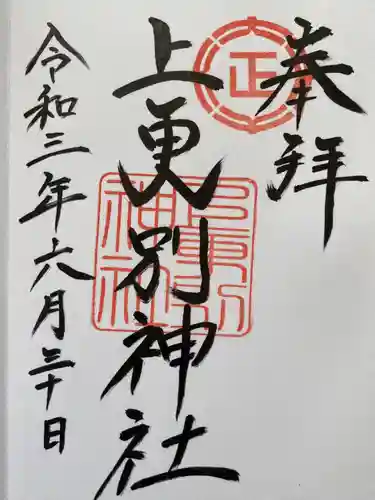 奉拝
正
上更別神社
上更別神社
令和三年六月三十日